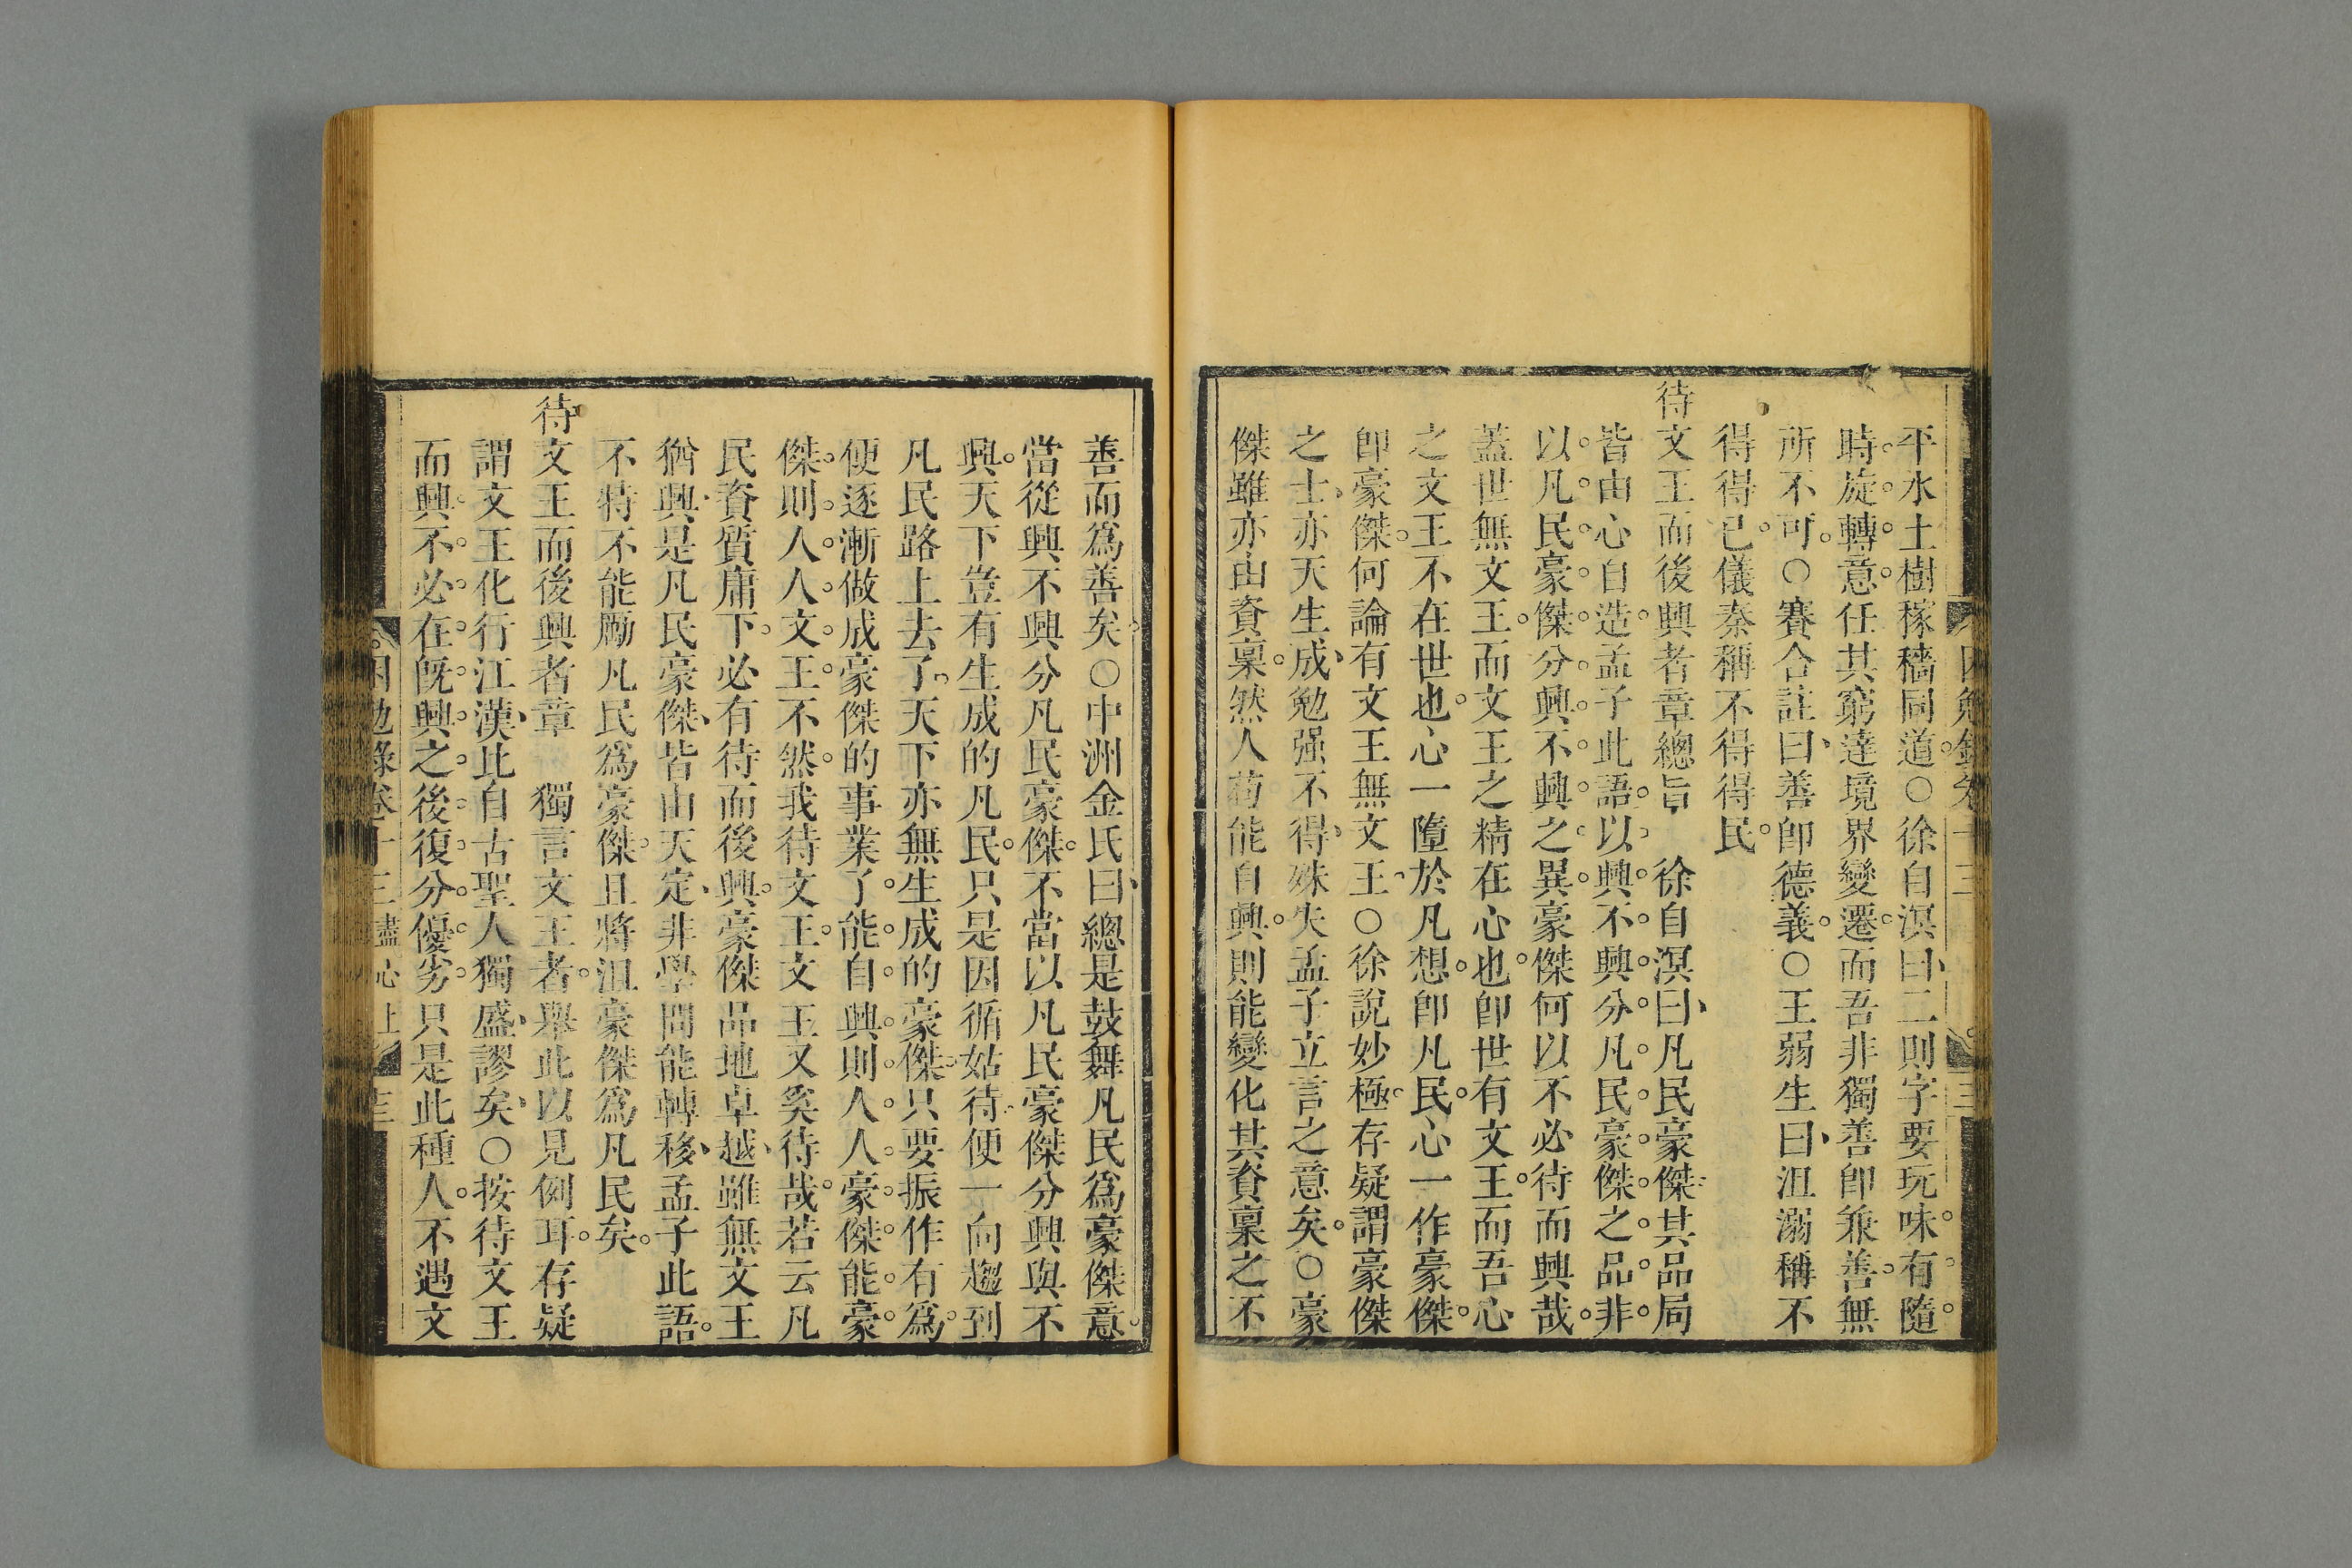 平水土樹稼穡同道○徐自溟曰二則字要玩味有隨
時旋轉意任其窮達境界變遷而吾非獨善卽兼善無
所不可○賽合註曰善卽德義○王弱生曰沮溺稱不
得得已儀秦稱不得得民
待文王而後興者章總旨　徐自溟曰凡民豪傑其品局
皆由心自造孟子此語以興不興分凡民豪傑之品非
以凡民豪傑分興不興之異豪傑何以不必待而興哉
蓋世無文王而文王之精在心也卽世有文王而吾心
之文王不在世也心一墮於凡想卽凡民心一作豪傑
卽豪傑何論有文王無文王○徐說妙極存疑謂豪傑
之士亦天生成勉强不得殊失孟子立言之意矣○豪
傑雖亦由資稟然人苟能自興則能變化其資稟之不
善而爲善矣○中洲金氏曰總是鼓舞凡民爲豪傑意
當從興不興分凡民豪傑不當以凡民豪傑分興與不
興天下豈有生成的凡民只是因循姑待便一向趨到
凡民路上去了天下亦無生成的豪傑只要振作有爲
便逐漸做成豪傑的事業了能自興則人人豪傑能豪
傑則人人文王不然我待文王文王又奚待哉若云凡
民資質庸下必有待而後興豪傑品地卓越雖無文王
猶興是凡民豪傑皆由天定非學問能轉移孟子此語
不特不能勵凡民爲豪傑且將沮豪傑爲凡民矣
待文王而後興者章　獨言文王者舉此以見例耳存疑
謂文王化行江漢此自古聖人獨盛謬矣○按待文王
而興不必在旣興之後復分優劣只是此種人不遇文
困勉錄卷十三盡心上